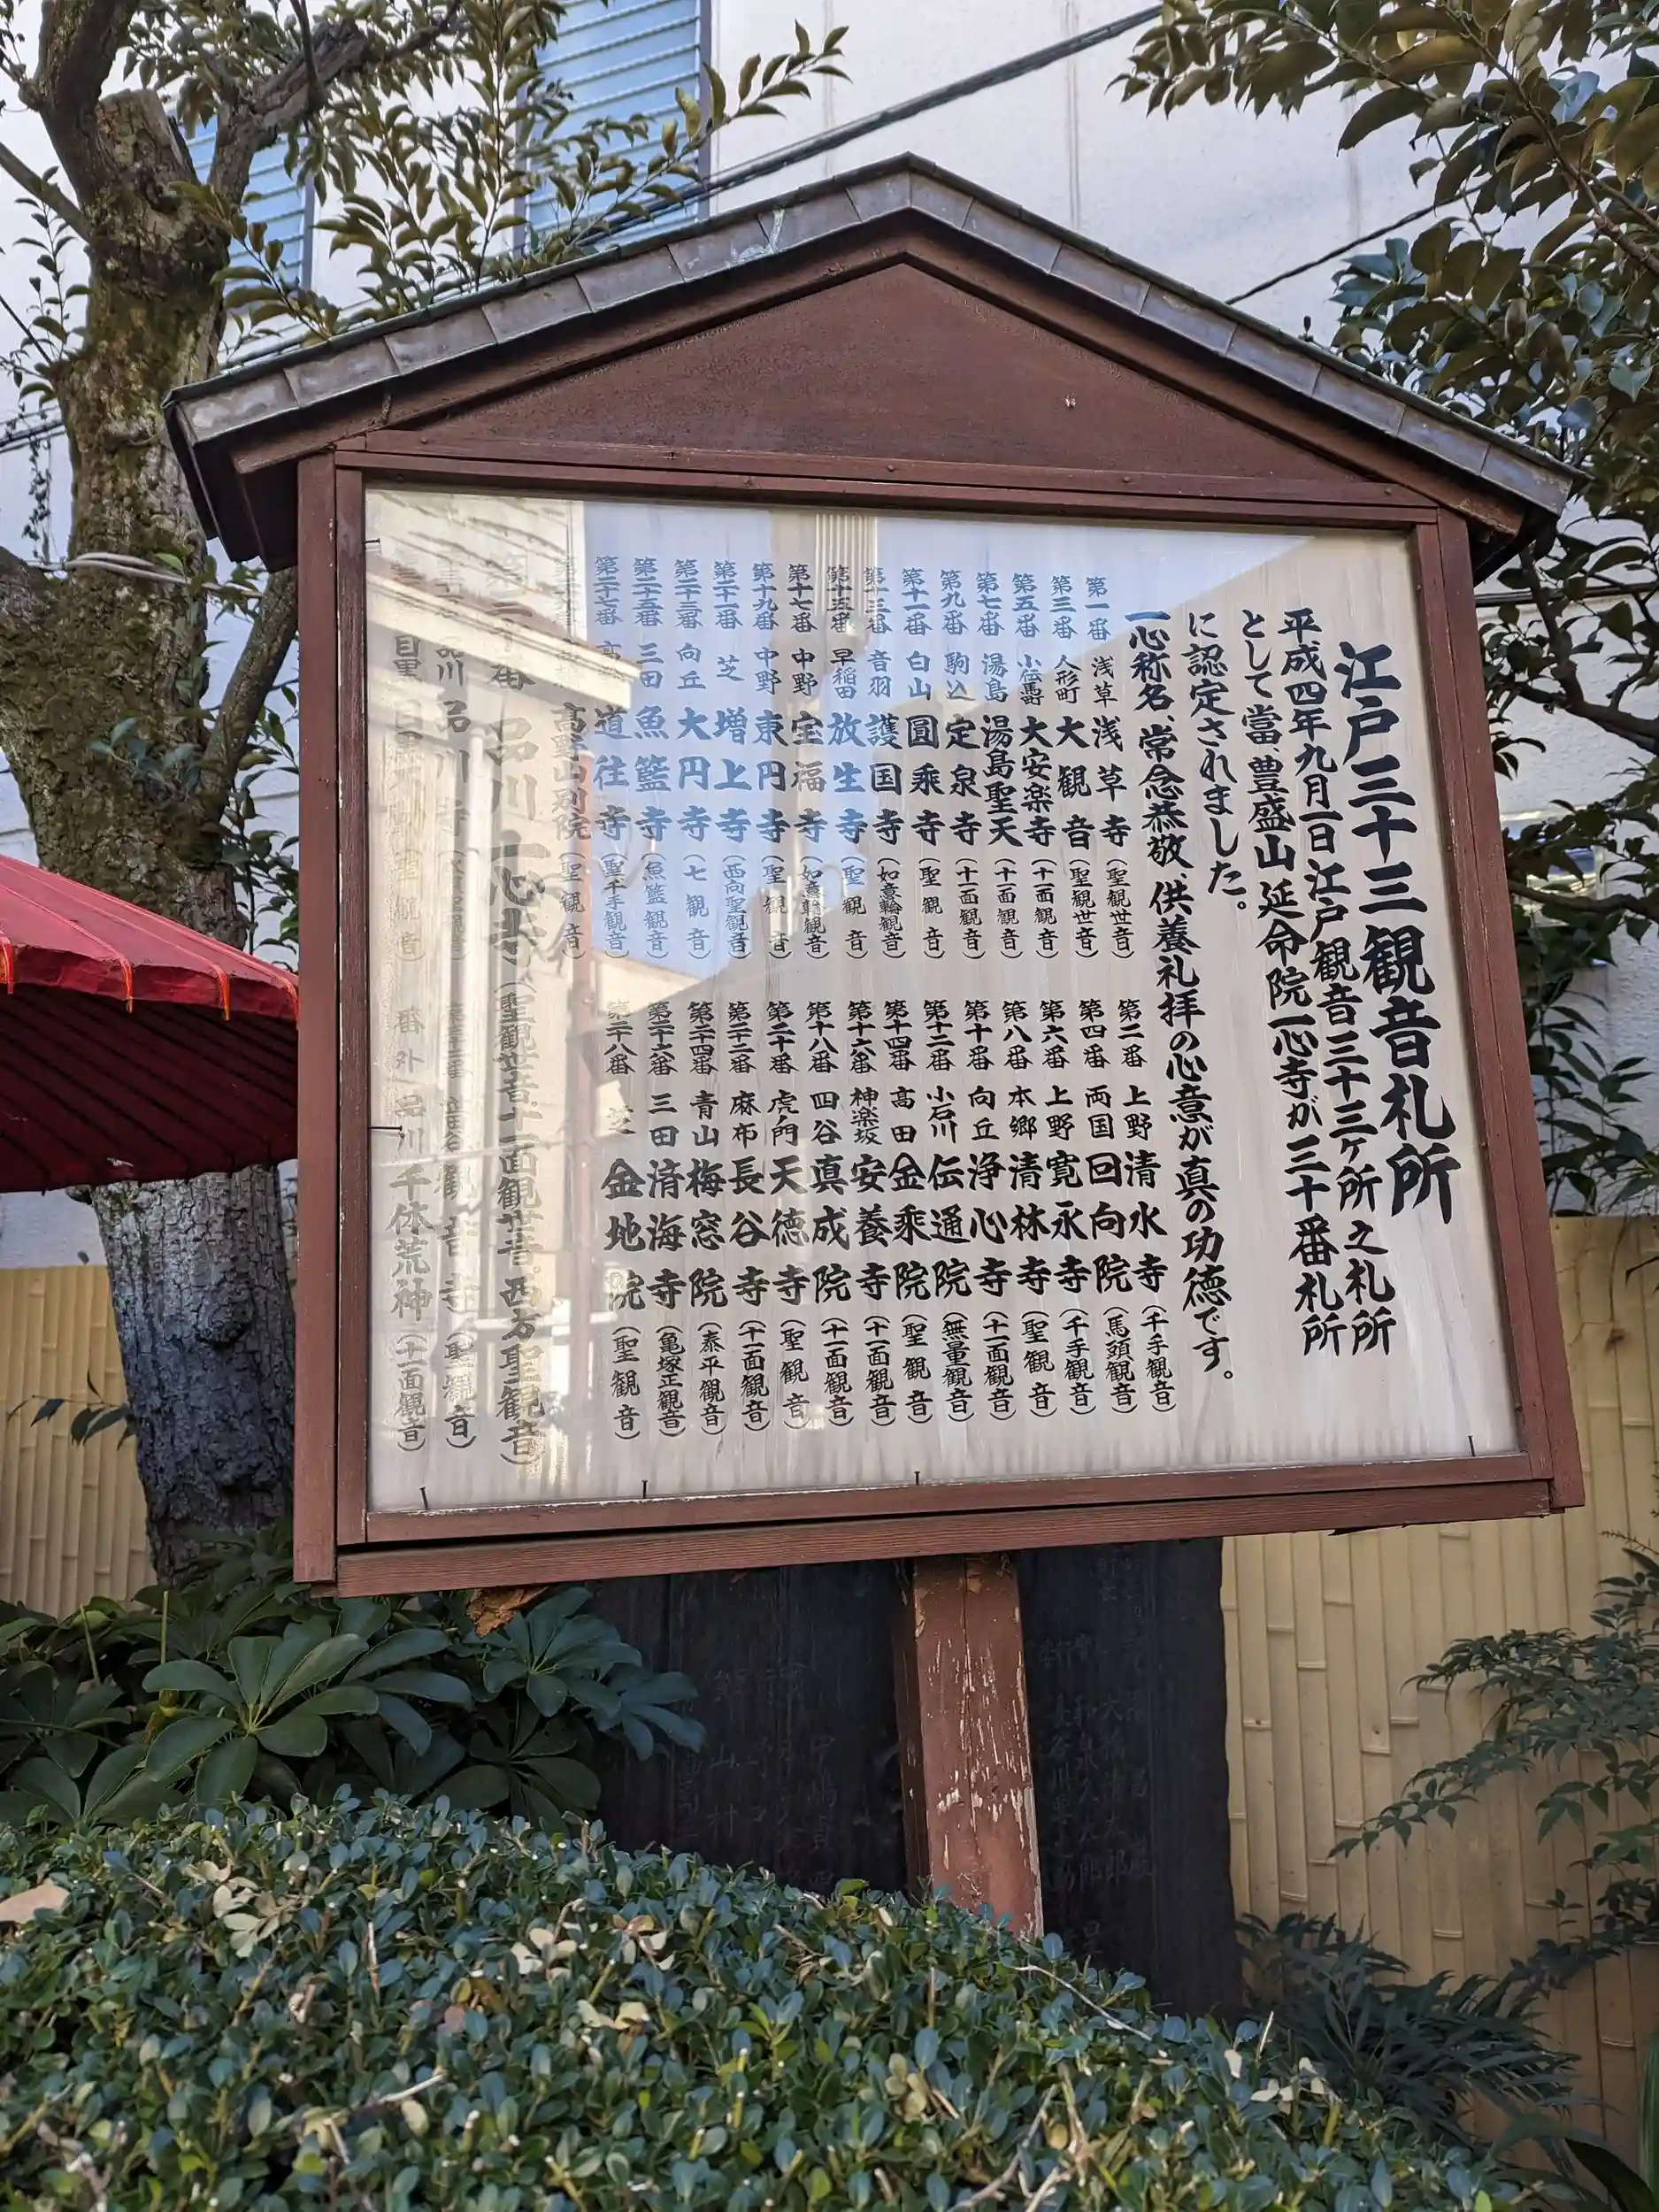 江戸三十三観音札所
平成四年九月一日江戸観音三十三ヶ所之札所
として當、豊盛山延命院一心寺が三十番札所
に認定されました。
一心称名、常念恭敬、供養礼拝の心意が真の功徳です。
第一番 浅草 浅草寺(聖観世音)
第二番 上野 清水寺(千手観音)
第三番 人形町 大観音(聖観世音)
第四番 両国 回向院(馬頭観音)
第五番 小伝馬 大安楽寺(十一面観音)
第六番 上野 寛永寺(千手観音)
第七番 湯島 湯島聖天(十一面観音)
第八番 本郷 清林寺(聖観音)
第九番 駒込 定泉寺(十一面観音)
第十番 向丘 浄心寺(十一面観音)
第十一番 白山 圓乘寺(聖観音)
第十二番 小石川 伝通院(無量観音)
第十三番 音羽 護国寺(如意輪観音)
第十四番 高田 金乘院(聖観音)
第十五番 早稲田 放生寺(聖観音)
第十六番 神楽坂 安養寺(十一面観音)
第十七番 中野 宝福寺(如意輪観音)
第十八番 四谷 真成院(十一面観音)
第十九番 中野 東円寺(聖観音)
第二十番 虎ノ門 天徳寺(聖観音)
第二十一番 芝 増上寺(西向聖観音)
第二十二番 麻布 長谷寺(十一面観音)
第二十三番 向丘 大円寺(七観音)
第二十四番 青山 梅窓院(泰平観音)
第二十五番 三田 魚籃寺(魚籃観音)
第二十六番 三田 済海寺(亀塚正観音)
第二十七番 高輪 道往寺(聖千手観音)
第二十八番 芝 金地院(聖観音)
高野山別院(聖観音)
第三十番 品川 一心寺(聖観世音。十一面観世音。西方聖観音)
品川 品川寺(水月聖観音)
観音寺(聖観音)
目黒 目黒不動(聖観音)
番外 品川 千体荒神(十一面観音)